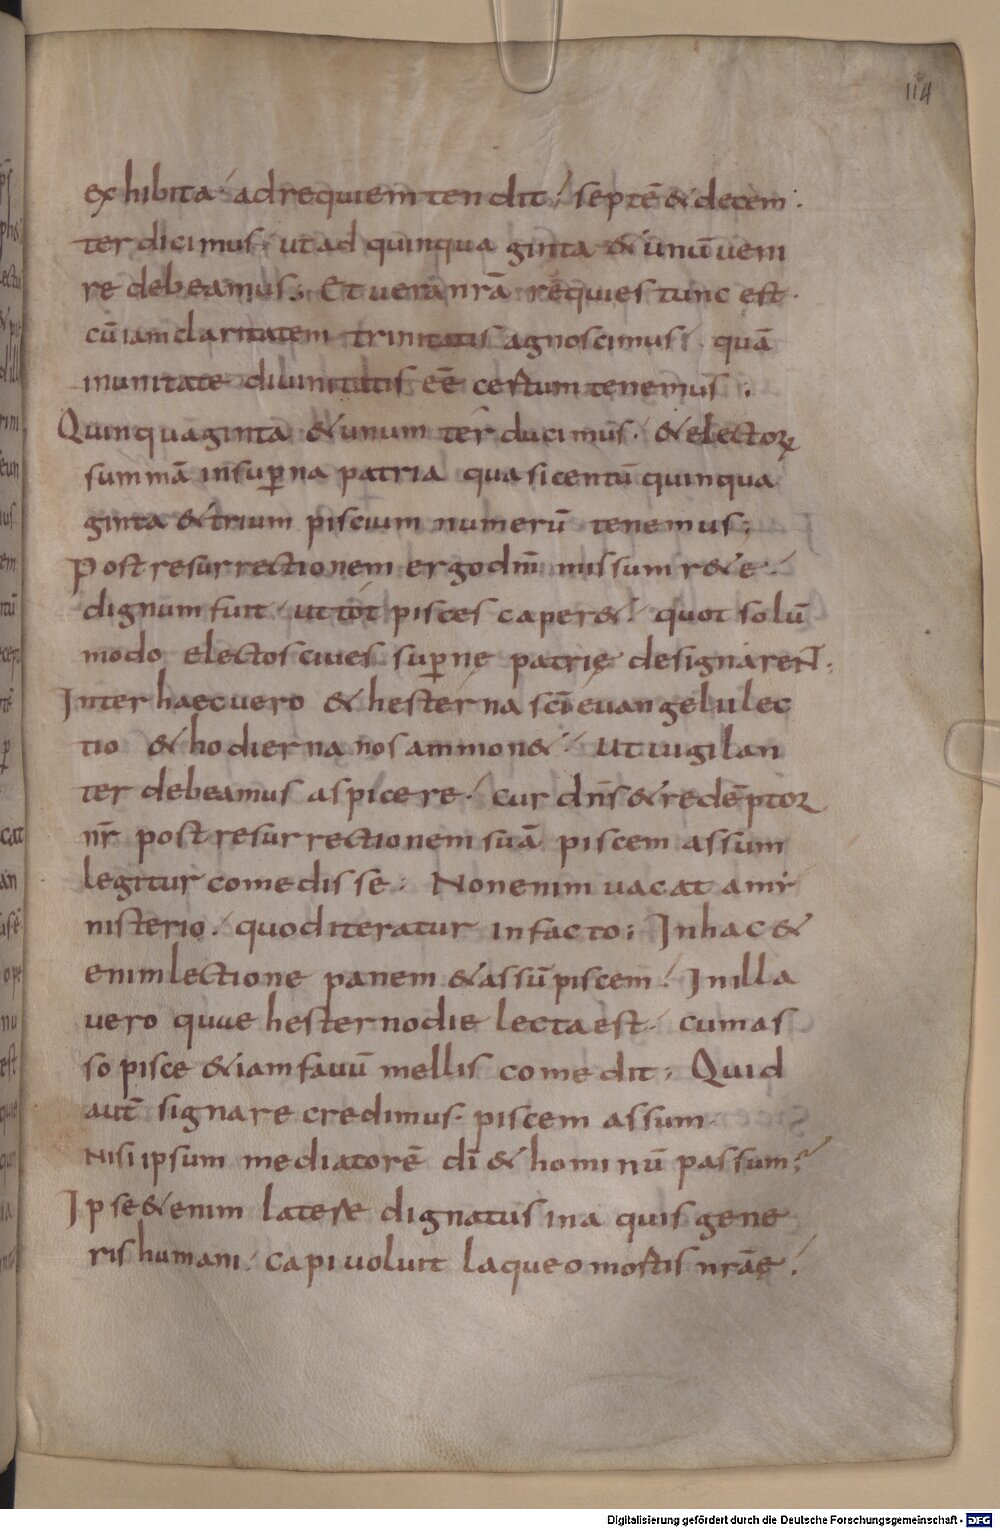 114
exhibita· ad requiem tendit; septē & decem·
ter dicimus· ut ad quinquaginta & unū ueni
re debeamus; Et uera nrā requies tunc est·
cū iam claritatem trinitatis agnoscimus· quā
in unitate diuinitatis eē certum tenemus;
Quinquaginta & unum ter ducimus· & electoꝝ
summā in suꝑna patria quasi centū quinqua
ginta & trium piscium numerū tenemus;
Post resurrectionem ergo dn̄i missum r&e·
dignum fuit· ut tot pisces caper&· quot solū
modo electos ciues suꝑnę patrię designarent·
Inter haec uero & hesterna sc̄i euangelii lec
tio & hodierna nos ammon&· Ut uigilan
ter debeamus aspicere· cur dn̄s & redēptor
nr̄ post resurrectionem suā piscem assum
legitur comedisse; Non enim uacat a mi
nisterio· quod iteratur in facto; In hac &
enim lectione panem & assū piscem· In illa
uero quae hesterno die lecta est· cum as
so pisce & iam fauū mellis comedit; Quid
aut̄ signare credimus· piscem assum·
Nisi ipsum mediatorē dī & hominū passum;
Ipse & enim latere dignatus in aquis gene
ris humani· capi uoluit laqueo mortis nrāe·
Digitalisierung gefördert durch die Deutsche Forschungsgemeinschaft - DFG